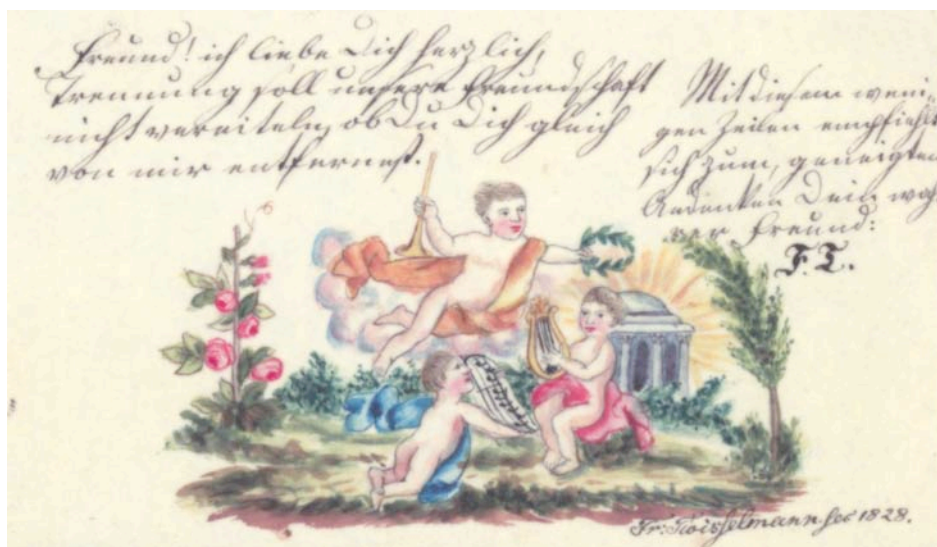 Freund! ich liebe Dich herzlich,
Trennung soll unsere Freundschaft
nicht vereiteln, ob Du Dich gleich
von mir entfernest.
Mit diesem weni-
gen Zeilen empfiehlt
sich zum, geneigten
Andenken Dein wah-
rer Freund:
F. T.
Fr: fec 1828.